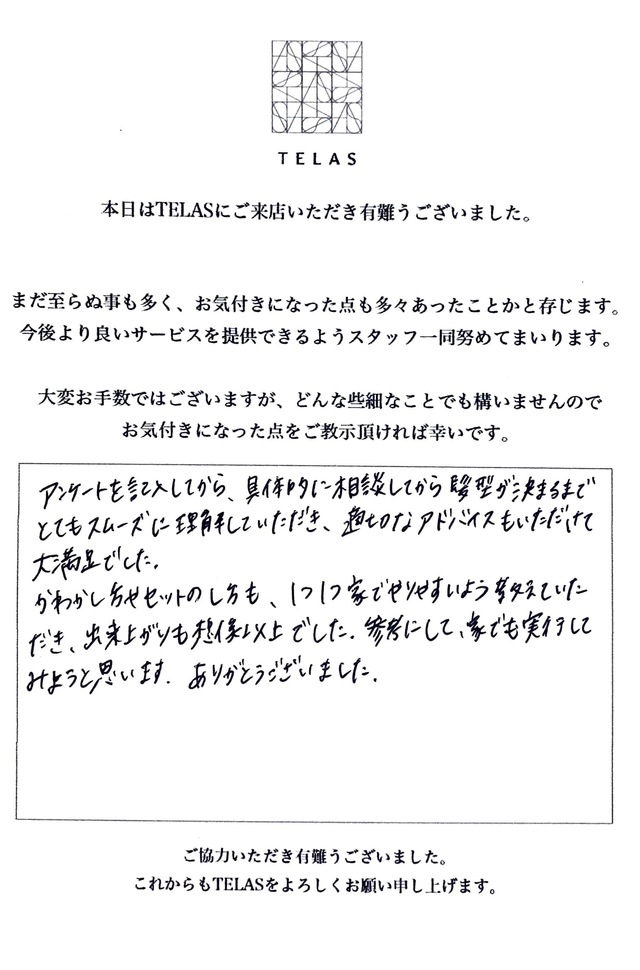 TELAS
本日はTELASにご来店いただき有難うございました。
まだ至らぬ事も多く、お気付きになった点も多々あったことかと存じます。
今後より良いサービスを提供できるようスタッフ一同努めてまいります。
大変お手数ではございますが、どんな些細なことでも構いませんので
お気付きになった点をご教示頂ければ幸いです。
アンケートを記入してから、具体的に相談してから髪型が決まるまで
とてもスムーズに理解していただき、適切なアドバイスもいただけて
大満足でした。
かわかし方やセットのし方も、1つ1つ家でやりやすいよう教えていた
だき、出来上がりも想像以上でした。参考にして、家でも実行して
みようと思います。ありがとうございました。
ご協力いただき有難うございました。
これからもTELASをよろしくお願い申し上げます。